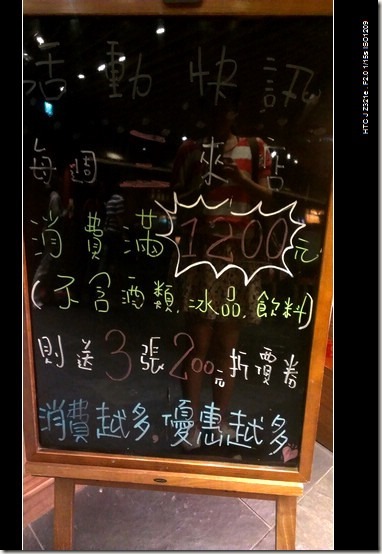 活動快訊
每週一來店
消費滿1200元
(不含酒類.冰品.飲料)
則送3張200元折價券
消費越多,優惠越多
HTC J Z321e F2.0 1/15s ISO1209